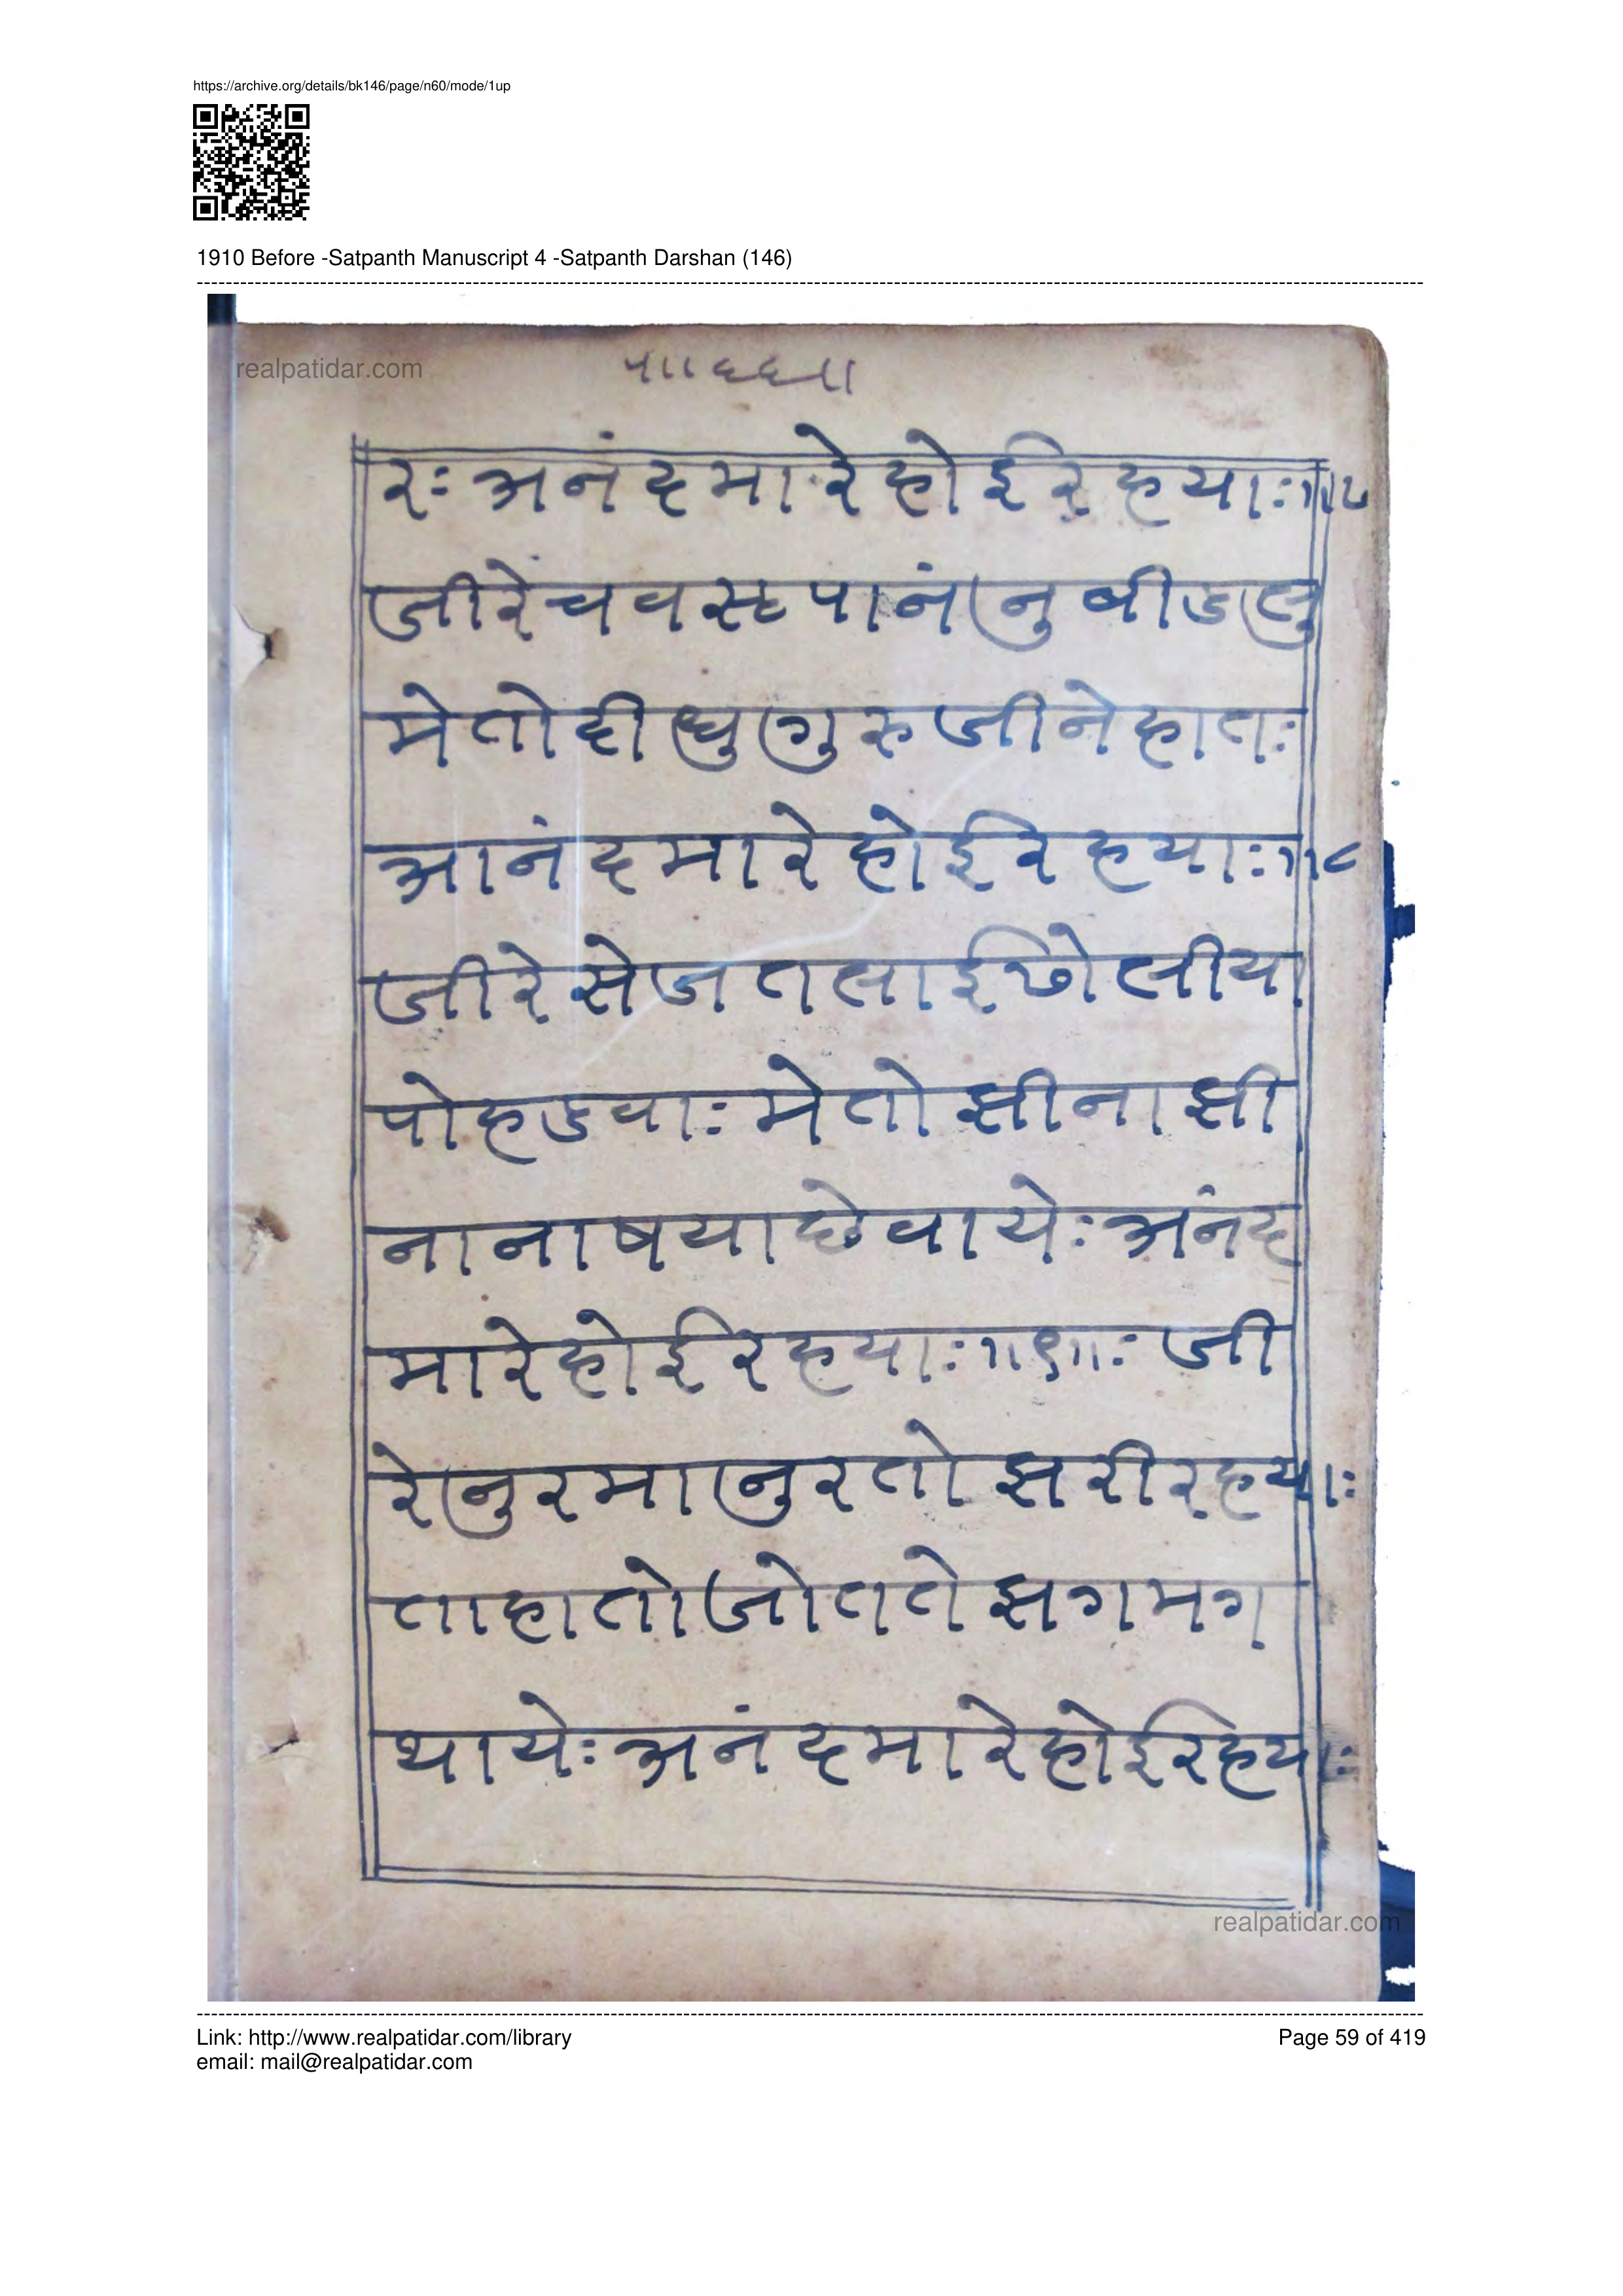 https://archive.org/details/bk146/page/n60/mode/1up
1910 Before -Satpanth Manuscript 4 -Satpanth Darshan (146)
realpatidar.com
रः अनंदमारे होई रहयाः॥७
जीरे चवस्ट पानंनु बीडलु
मे तो दीधु गुरुजीने हातः
आनंदमारे होई रहयाः॥८
जीरे सेज तलाई ढोलीया
पोहडवाः मे तो झीना झी
ना नाषया छे वायेः अनंद
मारे होई रहयाः॥९॥ः जी
रे नुरमा नुर तो झरी रहयाः
ताहा तो जोत ते झगमग
थायेः अनंदमारे होई रहयाः
realpatidar.com
Link: http://www.realpatidar.com/library
Page 59 of 419
email: mail@realpatidar.com